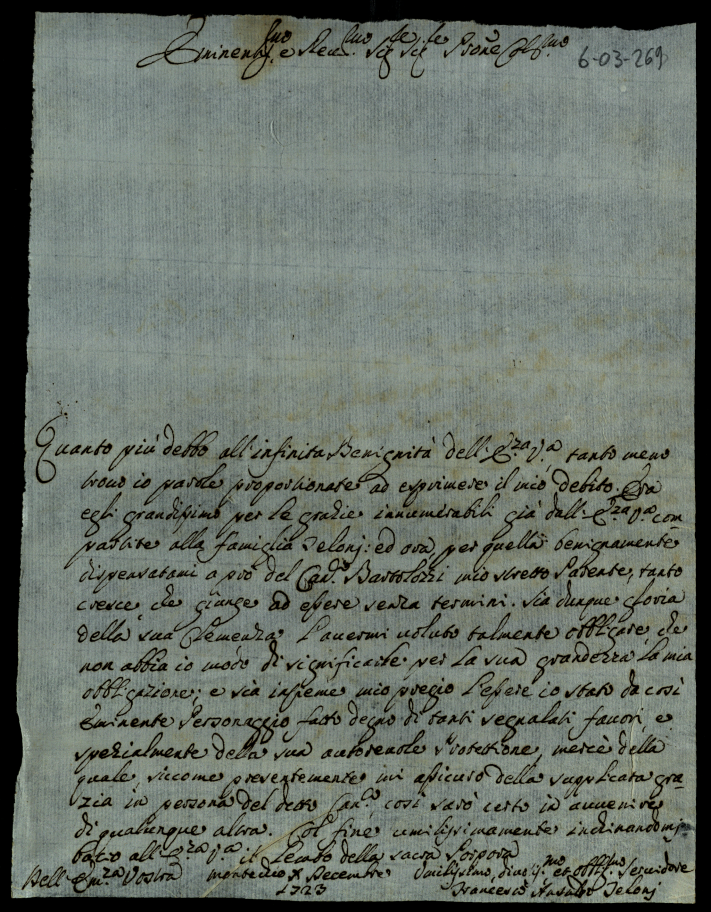 Eminentissmo e Revmo Sige Sige Prone Colmo
6-03-269
Quanto più debbo all'infinita Benignità dell'Eza Va tanto meno
trovo io parole proportionate ad esprimere il mio debito. Era
egli grandissimo per le grazie innumerabili già dall'Eza Va com-
partite alla famiglia Zelonj: ed ora per quella benignamente
dispensatami a prò del Cano Bartolozzi mio stretto Parente, tanto
cresce che giunge ad essere senza termini. Sia dunque gloria
della sua Clemenza l'avermi voluto talmente obbligare che
non abbia io modo di significarle per la sua grandezza la mia
obbligazione; e sia insieme mio pregio l'essere io stato da così
Eminente Personaggio fatto degno di tanti segnalati favori e
spezialmente della sua autorevole Protettione, mercè della
quale, siccome presentemente mi assicuro della supplicata gra-
zia in persona del detto Cano così sarò certo in avvenire
di qualunque altra. Col fine umilissimamente inchinandomj
bacio all'Eza Va il Lembo della sacra Porpora
Dell'Emza Vostra X Decembre Umilissimo, divotmo et obblmo Servidore
1723 Francesco Zelonj